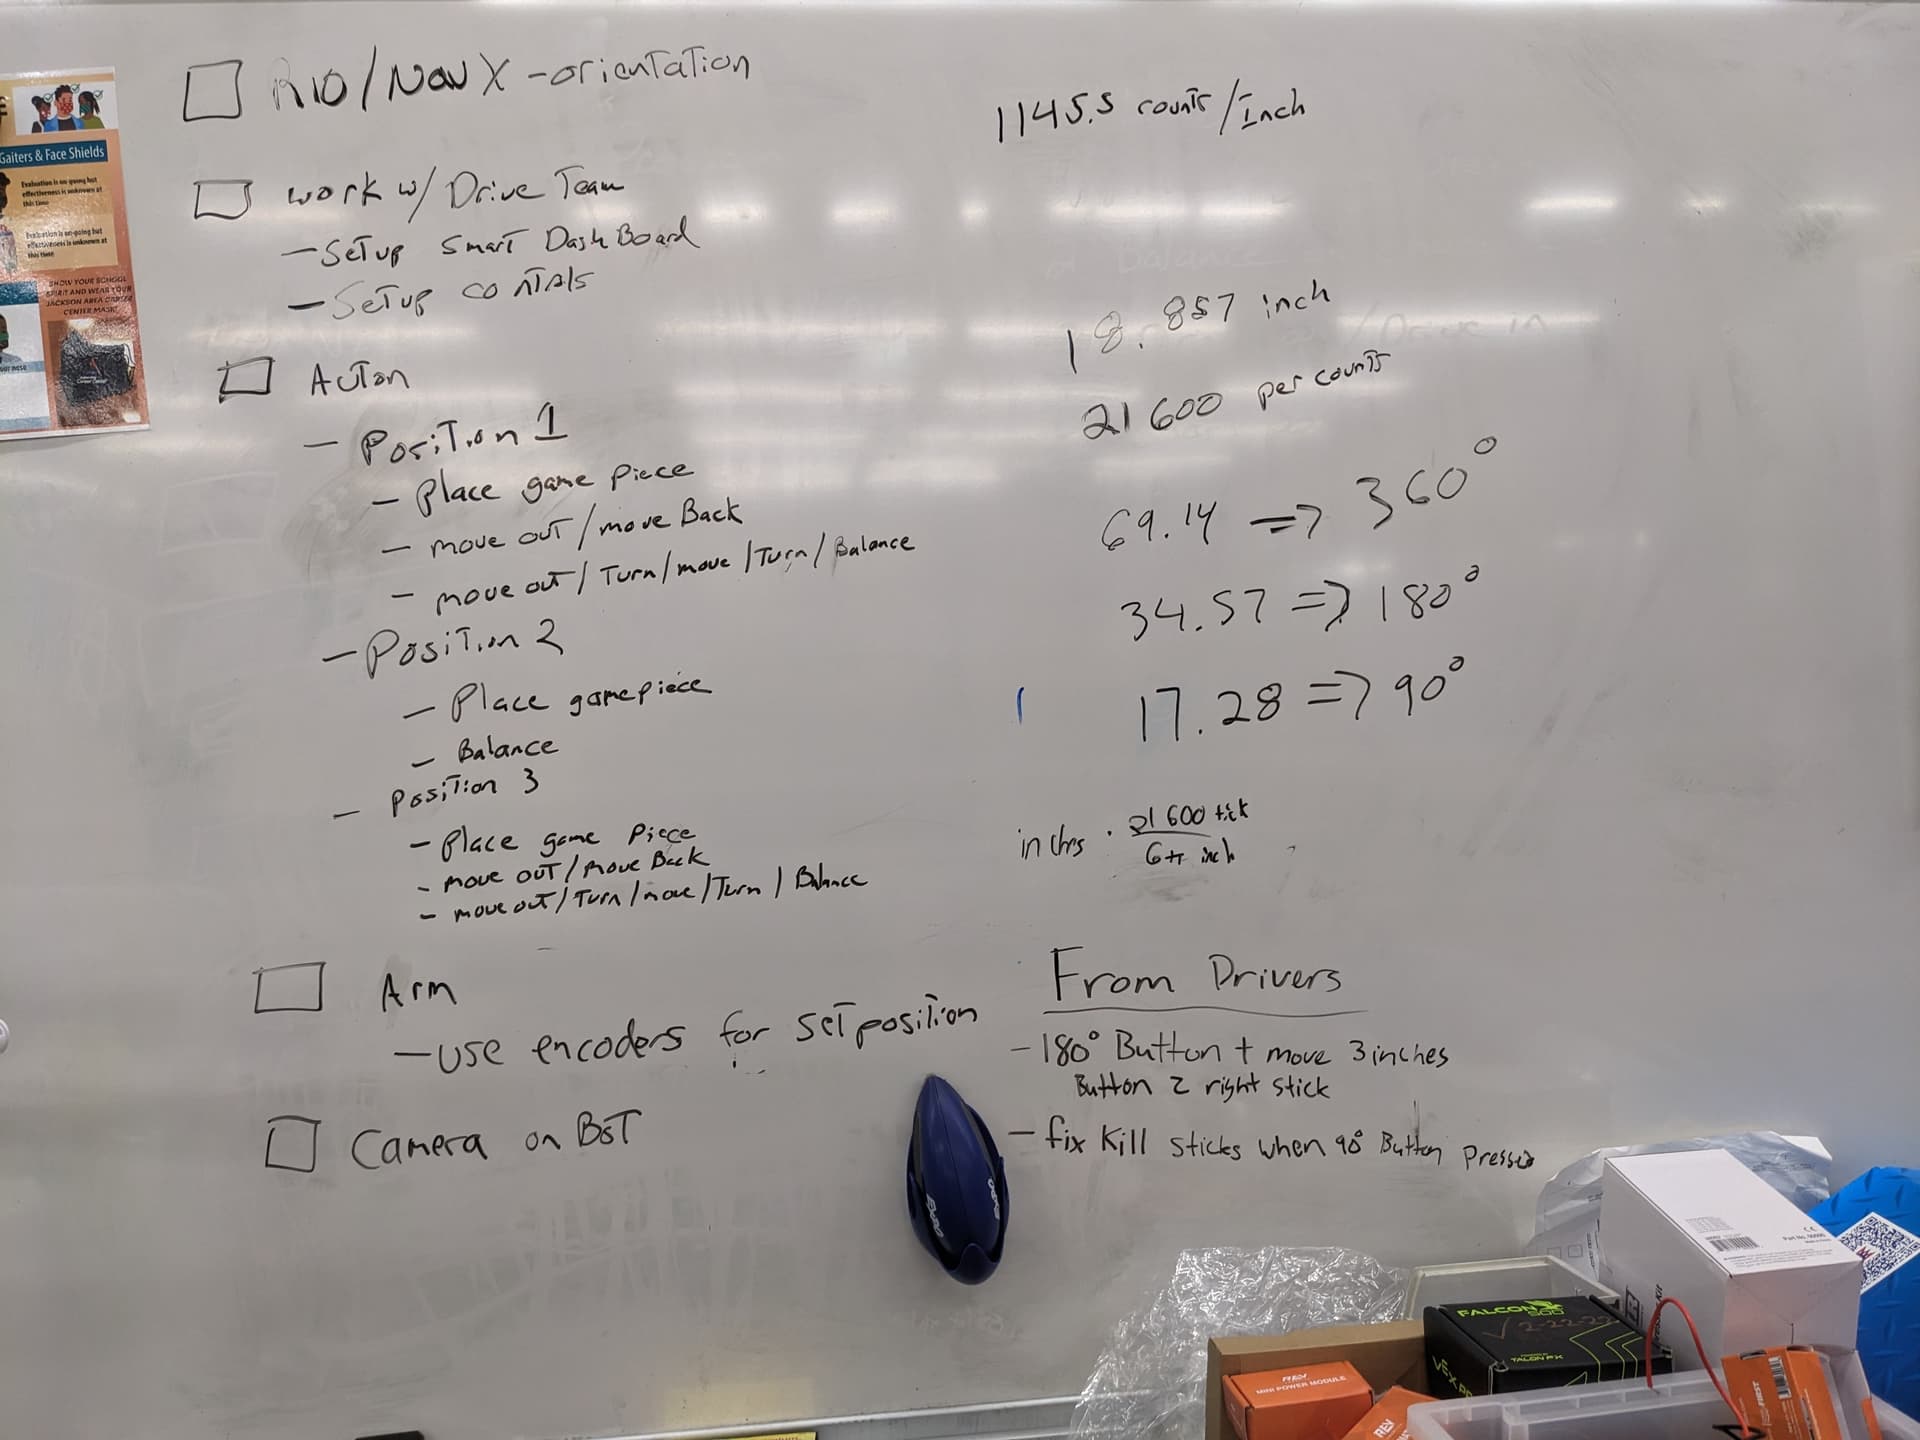 RIO/NavX - orientation
work w/ Drive Team
- Setup Smart DashBoard
- Setup contrls
Auton
- Position 1
- Place game piece
- move out/move Back
- move out/Turn/move/Turn/Balance
- Position 2
- Place gamepiece
- Balance
- Position 3
- Place game Piece
- move out/move Back
- move out/Turn/move/Turn/Balance
Arm
- use encoders for set position
Camera on BoT
1145.5 counts/Inch
18.857 inch
21600 per counts
69.14 => 360°
34.57 => 180°
17.28 => 90°
inches · 21600 tick
6π inch
From Drivers
- 180° Button + move 3 inches
Button 2 right stick
- fix Kill sticks when 90° Button presses
Balance
/Drive in
Gaiters & Face Shields
Evaluation is on-going but
effectiveness is unknown at
this time
Evaluation is on-going but
effectiveness is unknown at
this time
SHOW YOUR SCHOOL
SPIRIT AND WEAR YOUR
JACKSON AREA CAREER
CENTER MASK!
EXPO
EXPO
FALCON
500
√ 2-22-22
POWERED BY
TALON FX
VEX PRO
REV
MINI POWER MODULE
REV
Part No.
CE